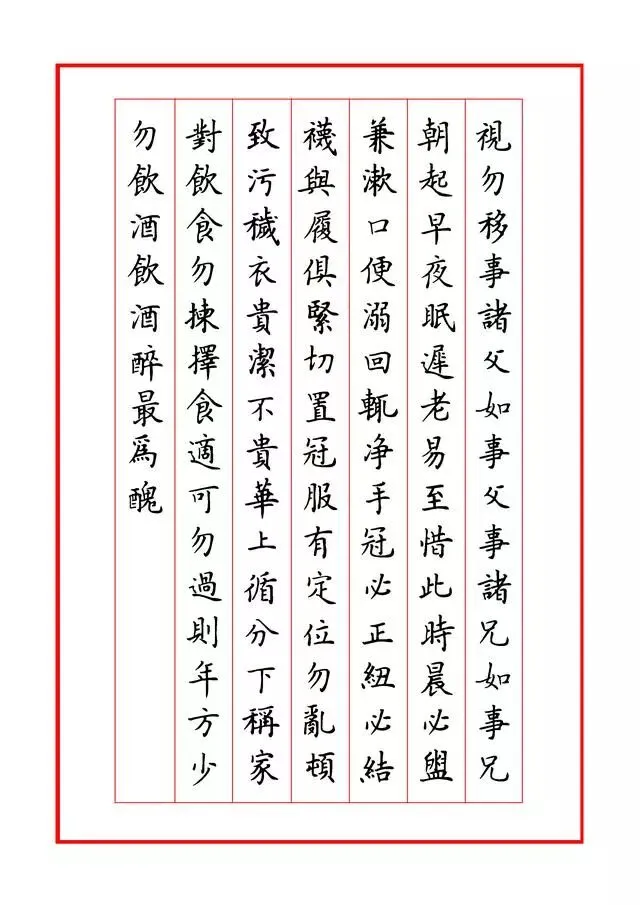 視勿移事諸父如事父事諸兄如事兄
朝起早夜眠遲老易至惜此時晨必盥
兼漱口便溺回輒净手冠必正紐必結
襪與履俱緊切置冠服有定位勿亂頓
致污穢衣貴潔不貴華上循分下稱家
對飲食勿揀擇食適可勿過則年方少
勿飲酒飲酒醉最爲醜